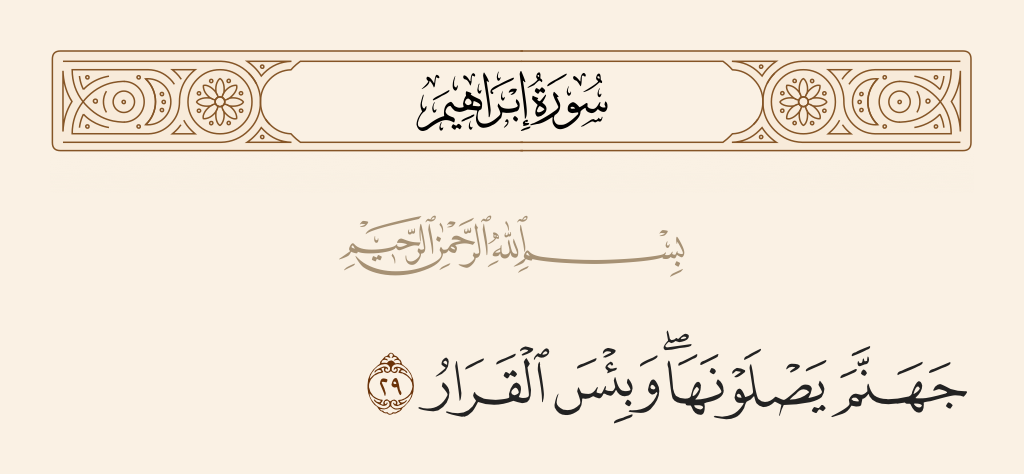 سُورَةُ إِبْرَاهِيمَ
بِسْمِ ٱللَّهِ ٱلرَّحْمَٰنِ ٱلرَّحِيمِ
جَهَنَّمَ يَصْلَوْنَهَا ۖ وَبِئْسَ ٱلْقَرَارُ ٢٩